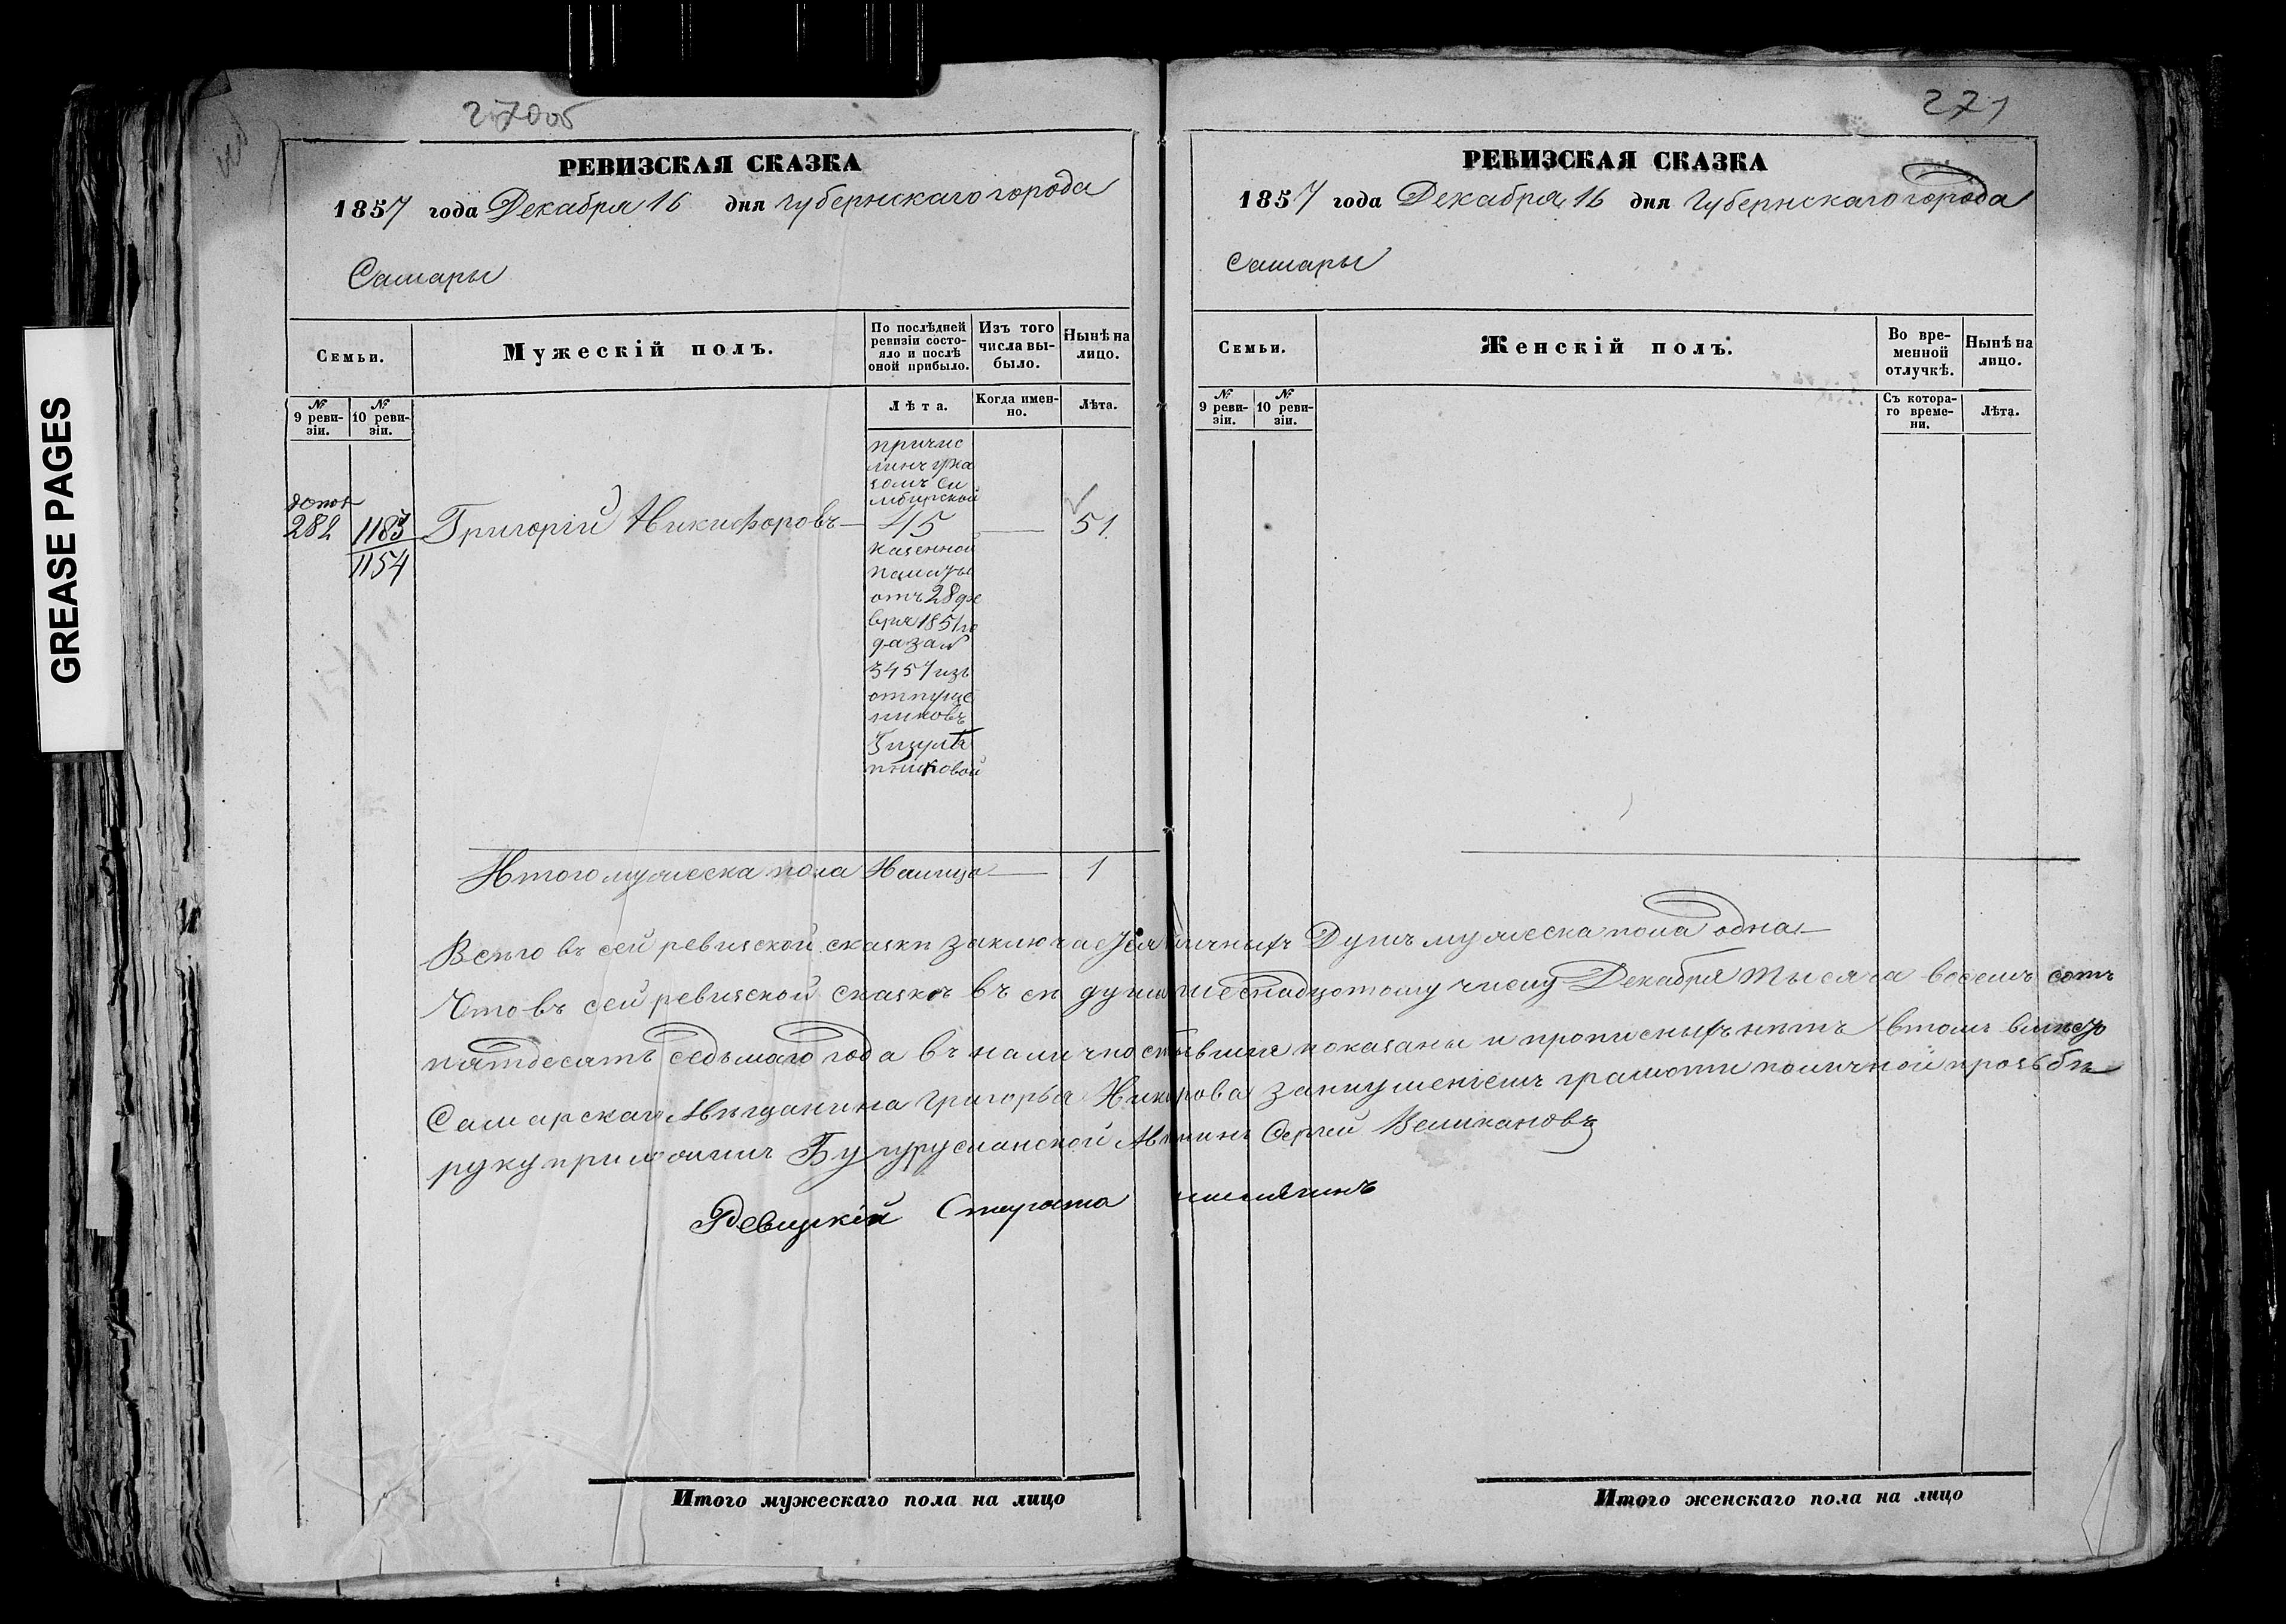 GREASE PAGES
270об
РЕВИЗСКАЯ СКАЗКА
1857 года Декабря 16 дня губернскаго города
Самары
Семьи.
Мужескій полъ.
По послѣдней ревизіи состо-
яло и послѣ
оной прибыло.
Изъ того
числа вы-
было.
Нынѣ на
лицо.
№
9 реви-
зіи.
№
10 реви-
зіи.
Лѣта.
Когда имен-
но.
Лѣта.
причис
ленъ ука
зомъ Си
мбирской
282
1183
Григорій Никифоровъ
45
51
1154
казенной
палаты
отъ 28 фе
вря 1851 го
да за №
3457 изъ
отпуще
никовъ
Итого мужеска пола Налицо 1
Всего въ сей ревизской сказки заключается личныхъ Душъ мужеска пола одна
Что въ сей ревизской сказкѣ въ си души шеснадцотому числу Декабря тысяча восемъ сотъ
пятдесятъ седьмаго года въ наличностибывшия показаны и прописныхъ нѣтъ втомъ вместо
Самарскаго Мѣщанина Григорья занеуменіемъ грамоти поличной прозьбѣ
руку приложилъ Бугурусланской Сергей Великановъ
Ревизкій Староста
271
РЕВИЗСКАЯ СКАЗКА
1857 года Декабря 16 дня Губернскаго города
Самары
Семьи.
Женскій полъ.
Во вре-
менной
отлучкѣ.
Нынѣ на
лицо.
№
9 реви-
зіи.
№
10 реви-
зіи.
Съ котора-
го време-
ни.
Лѣта.
Итого мужескаго пола на лицо
Итого женскаго пола на лицо